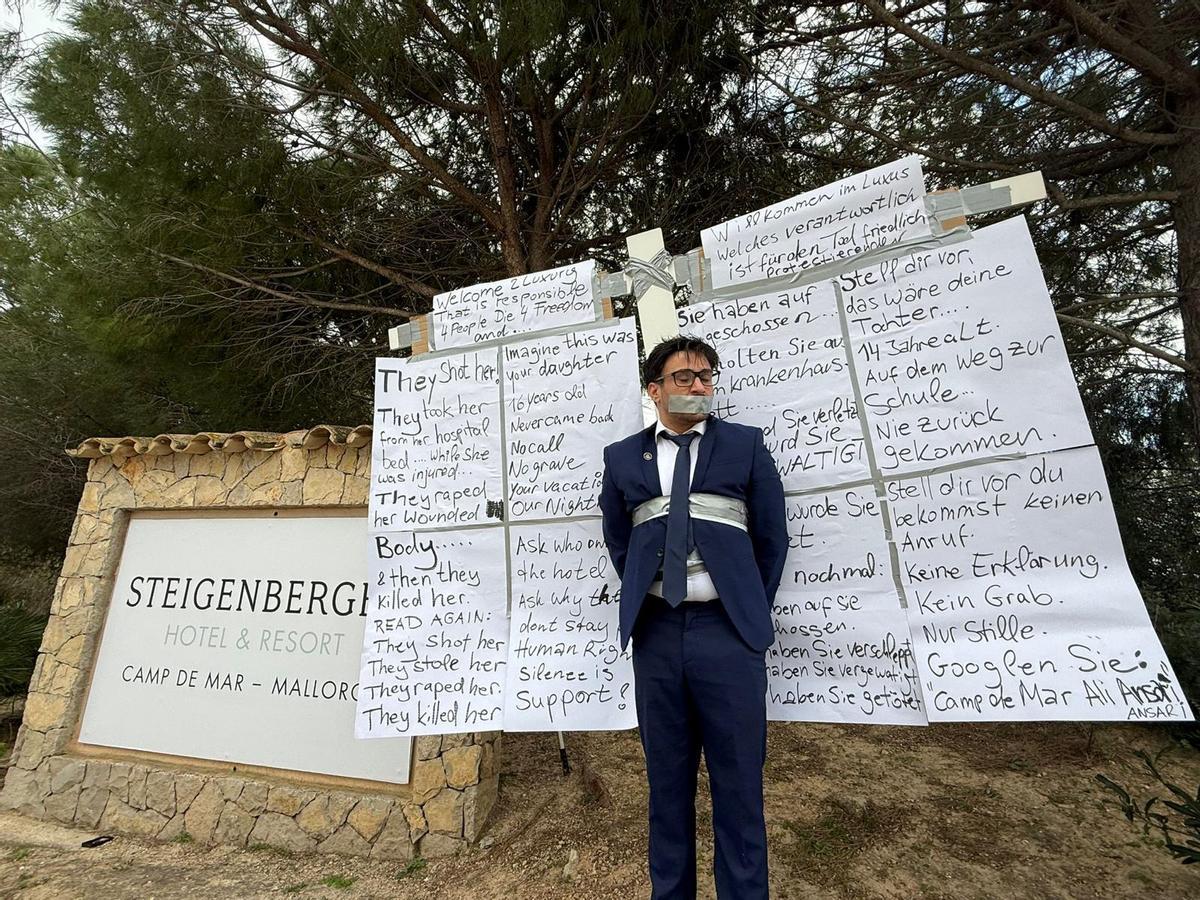 STEIGENBERGE
HOTEL & RESORT
CAMP DE MAR – MALLORC
Welcome 2 Luxury
That is responsible
4 People Die 4 Freedom
and....
They shot her.
They took her
from her hospital
bed.... while she
was injured....
They raped
her wounded
Body.....
& then they
killed her.
READ AGAIN:
They shot her
They stole her
They raped her.
They killed her
Imagine this was
your daughter
16 years old
Never came back
No call
No grave
Your vacation
Our Night
Ask who
the hotel
Ask why
dont stay
Human Righ
Silence is
Support!
Willkommen im Luxus
Welches verantwortlich
ist für den Tod friedlich
protestierender
Sie haben auf
geschossen...
olten Sie au
m krankenhaus.
tt.....
d Sie verletz
wurd Sie
WALTIGT
wurde Sie
et.
nochmal:
ben auf sie
hossen.
haben Sie verschleppt
haben Sie vergewalti
haben Sie getötet
Stell dir vor,
das wäre deine
Tochter....
14 Jahre alt.
Auf dem Weg zur
Schule...
Nie zurück
gekommen.
Stell dir vor du
bekommst keinen
Anruf.
Keine Erklärung.
Kein Grab.
Nur Stille.
Googlen Sie:
"Camp de Mar Ali Ansari"
ANSARI